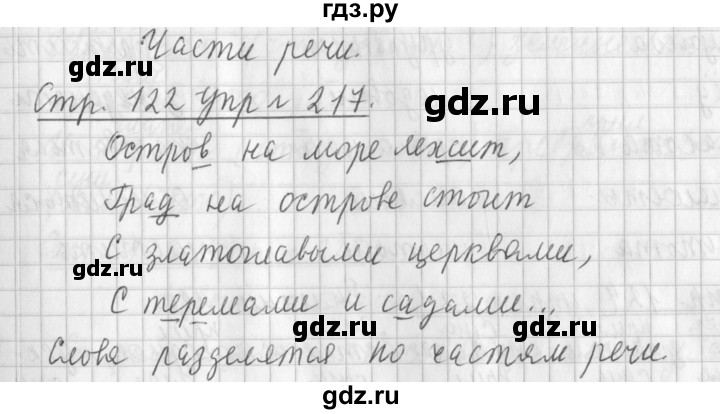 гдз.ру
Части речи.
gdz.ru
Стр. 122 Упр № 217.
gdz.ru
Остров на море лежит,
Град на острове стоит
gdz.ru
С златоглавыми церквами,
С теремами и садами...
gdz.ru
gdz.ru
Слова разделятся по частям речи.
gdz.ru